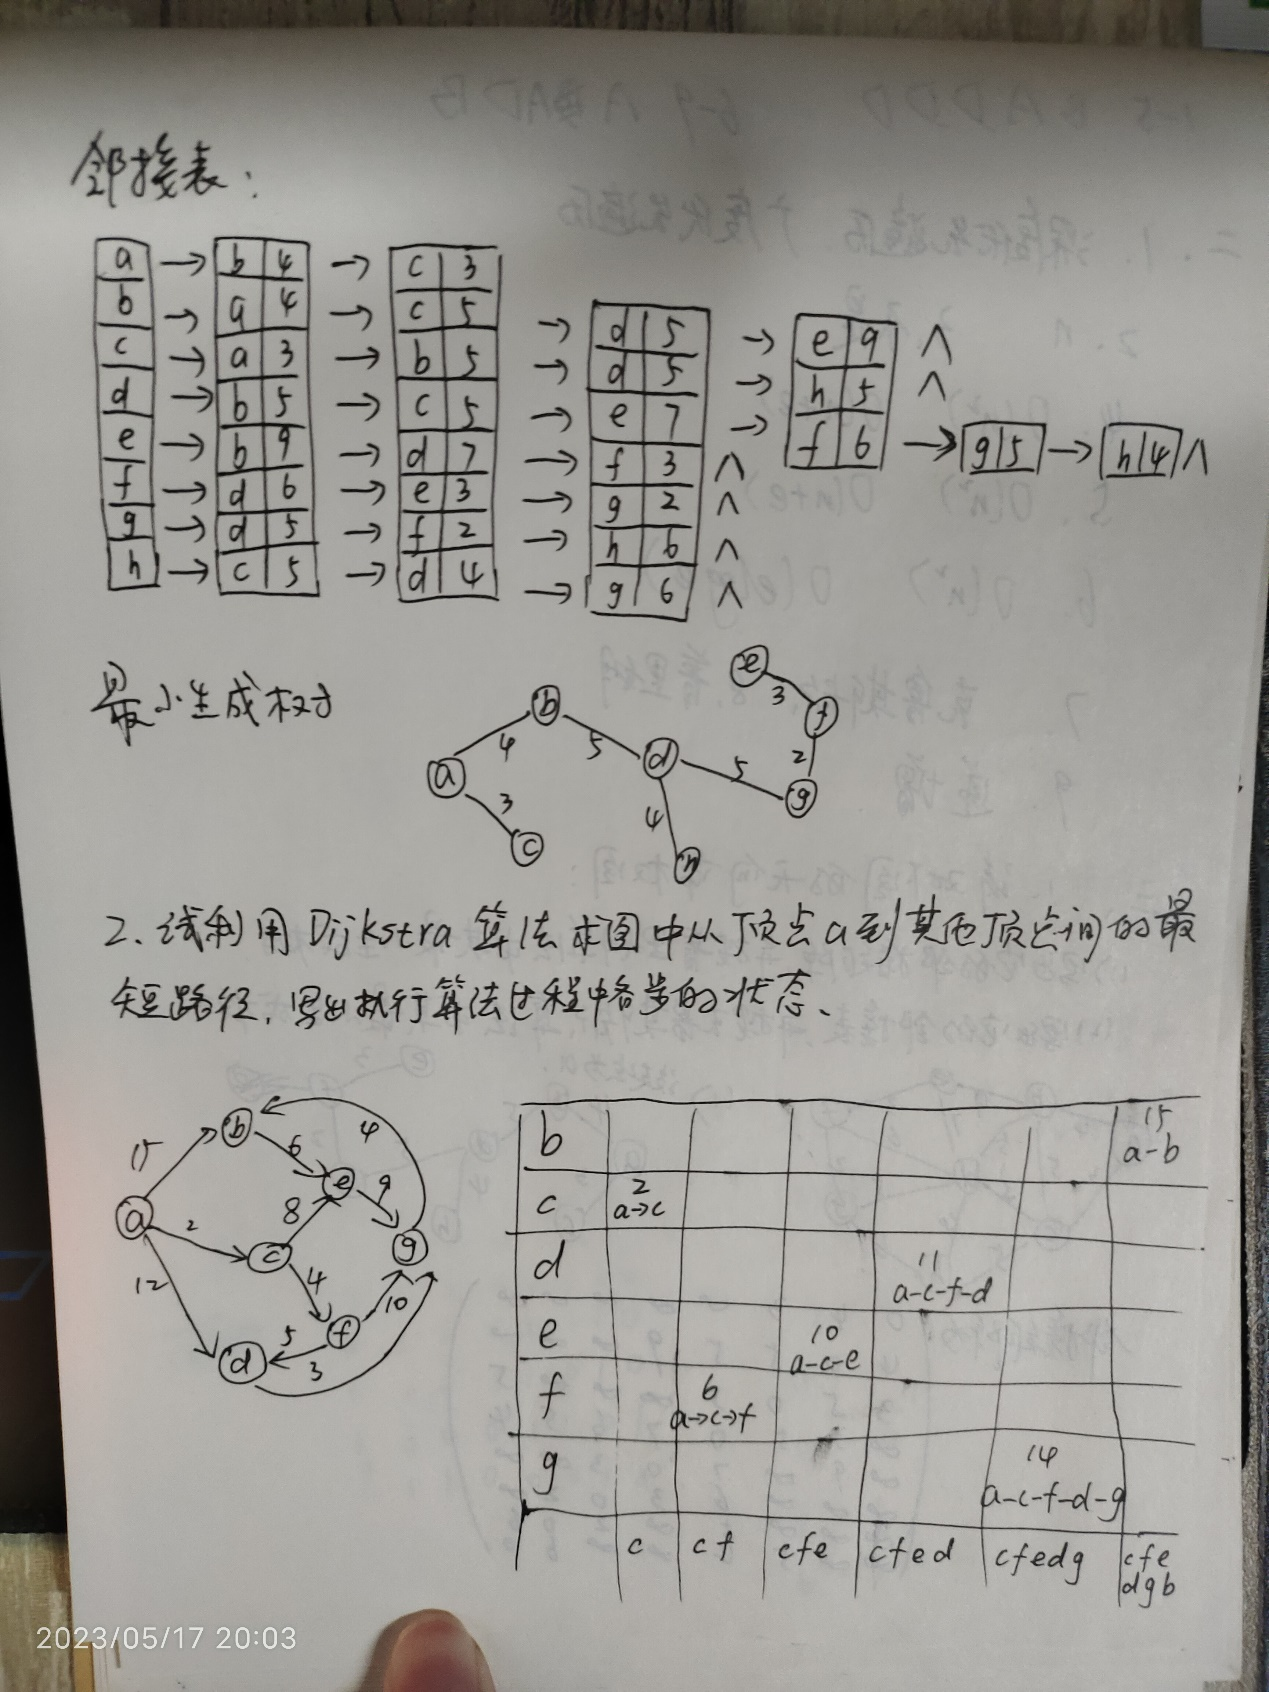 邻接表：
a → b 4 → c 3
b → a 4 → c 5 → d 5 → e 9 ∧
c → a 3 → b 5 → d 5 → h 5 ∧
d → b 5 → c 5 → e 7 → f 6 → g 5 → h 4 ∧
e → b 9 → d 7 → f 3 ∧
f → d 6 → e 3 → g 2 ∧
g → d 5 → f 2 → h 6 ∧
h → c 5 → d 4 → g 6 ∧
最小生成树
e 3 f
b
4 5 d 2
a 5 g
3 4
c h
2、试利用Dijkstra算法求图中从顶点a到其他顶点间的最
短路径，写出执行算法过程中各步的状态、
b 4
15 6 e 9
a 2 8 g
c 4
12 10
5 f
d 3
b 15
a-b
c 2
a→c
d 11
a-c-f-d
e 10
a-c-e
f 6
a→c→f
g 14
a-c-f-d-g
c cf cfe cfed cfedg cfe
dgb
2023/05/17 20:03